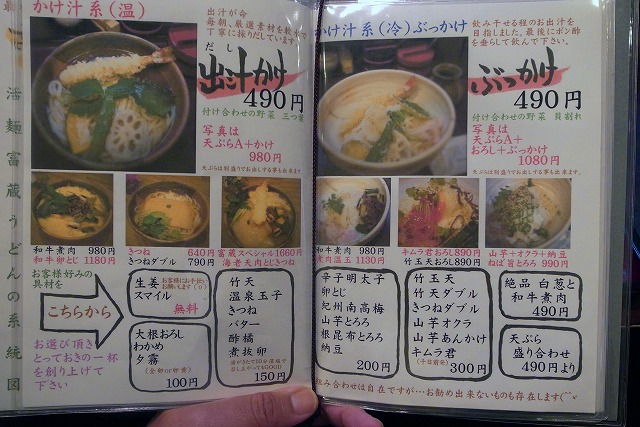 かけ汁系(温)
出汁が命
毎朝、厳選素材を軟水で
丁寧に採りだしています。
だし
出汁かけ
490円
付け合わせの野菜 三つ葉
写真は
天ぷらA+かけ
980円
天ぷらは別盛りでお出しする事も出来ます
和牛煮肉 980円
和牛卵とじ 1180円
きつね 640円
きつねダブル 790円
富蔵スペシャル1660円
海老天肉とじきつね
お客様好みの
具材を
こちらから
お選び頂き
とっておきの一杯
を創り上げて
下さい
生姜
スマイル
無料
大根おろし
わかめ
夕霧
(全卵or卵黄)
100円
竹天
温泉玉子
きつね
バター
酢橘
煮抜卵
150円
活麺富蔵うどんの系統図
かけ汁系(冷)ぶっかけ
飲み干せる程のお出汁を
目指しました。最後にポン酢
を垂らして飲んで下さい。
ぶっかけ
490円
付け合わせの野菜 貝割れ
写真は
天ぷらA+
おろし+ぶっかけ
1080円
天ぷらは別盛りでお出しする事も出来ます
和牛煮肉 980円
煮肉温玉 1130円
キムラ君おろし890円
竹玉天おろし890円
山芋+オクラ+納豆
ねば旨とろろ990円
辛子明太子
卵とじ
紀州南高梅
山芋とろろ
根昆布とろろ
納豆
200円
竹玉天
竹天ダブル
きつねダブル
山芋オクラ
山芋あんかけ
キムラ君
300円
絶品 白葱と
和牛煮肉
490円
天ぷら
盛り合わせ
490円より
組み合わせは自在ですが…お勧め出来ないものも存在します